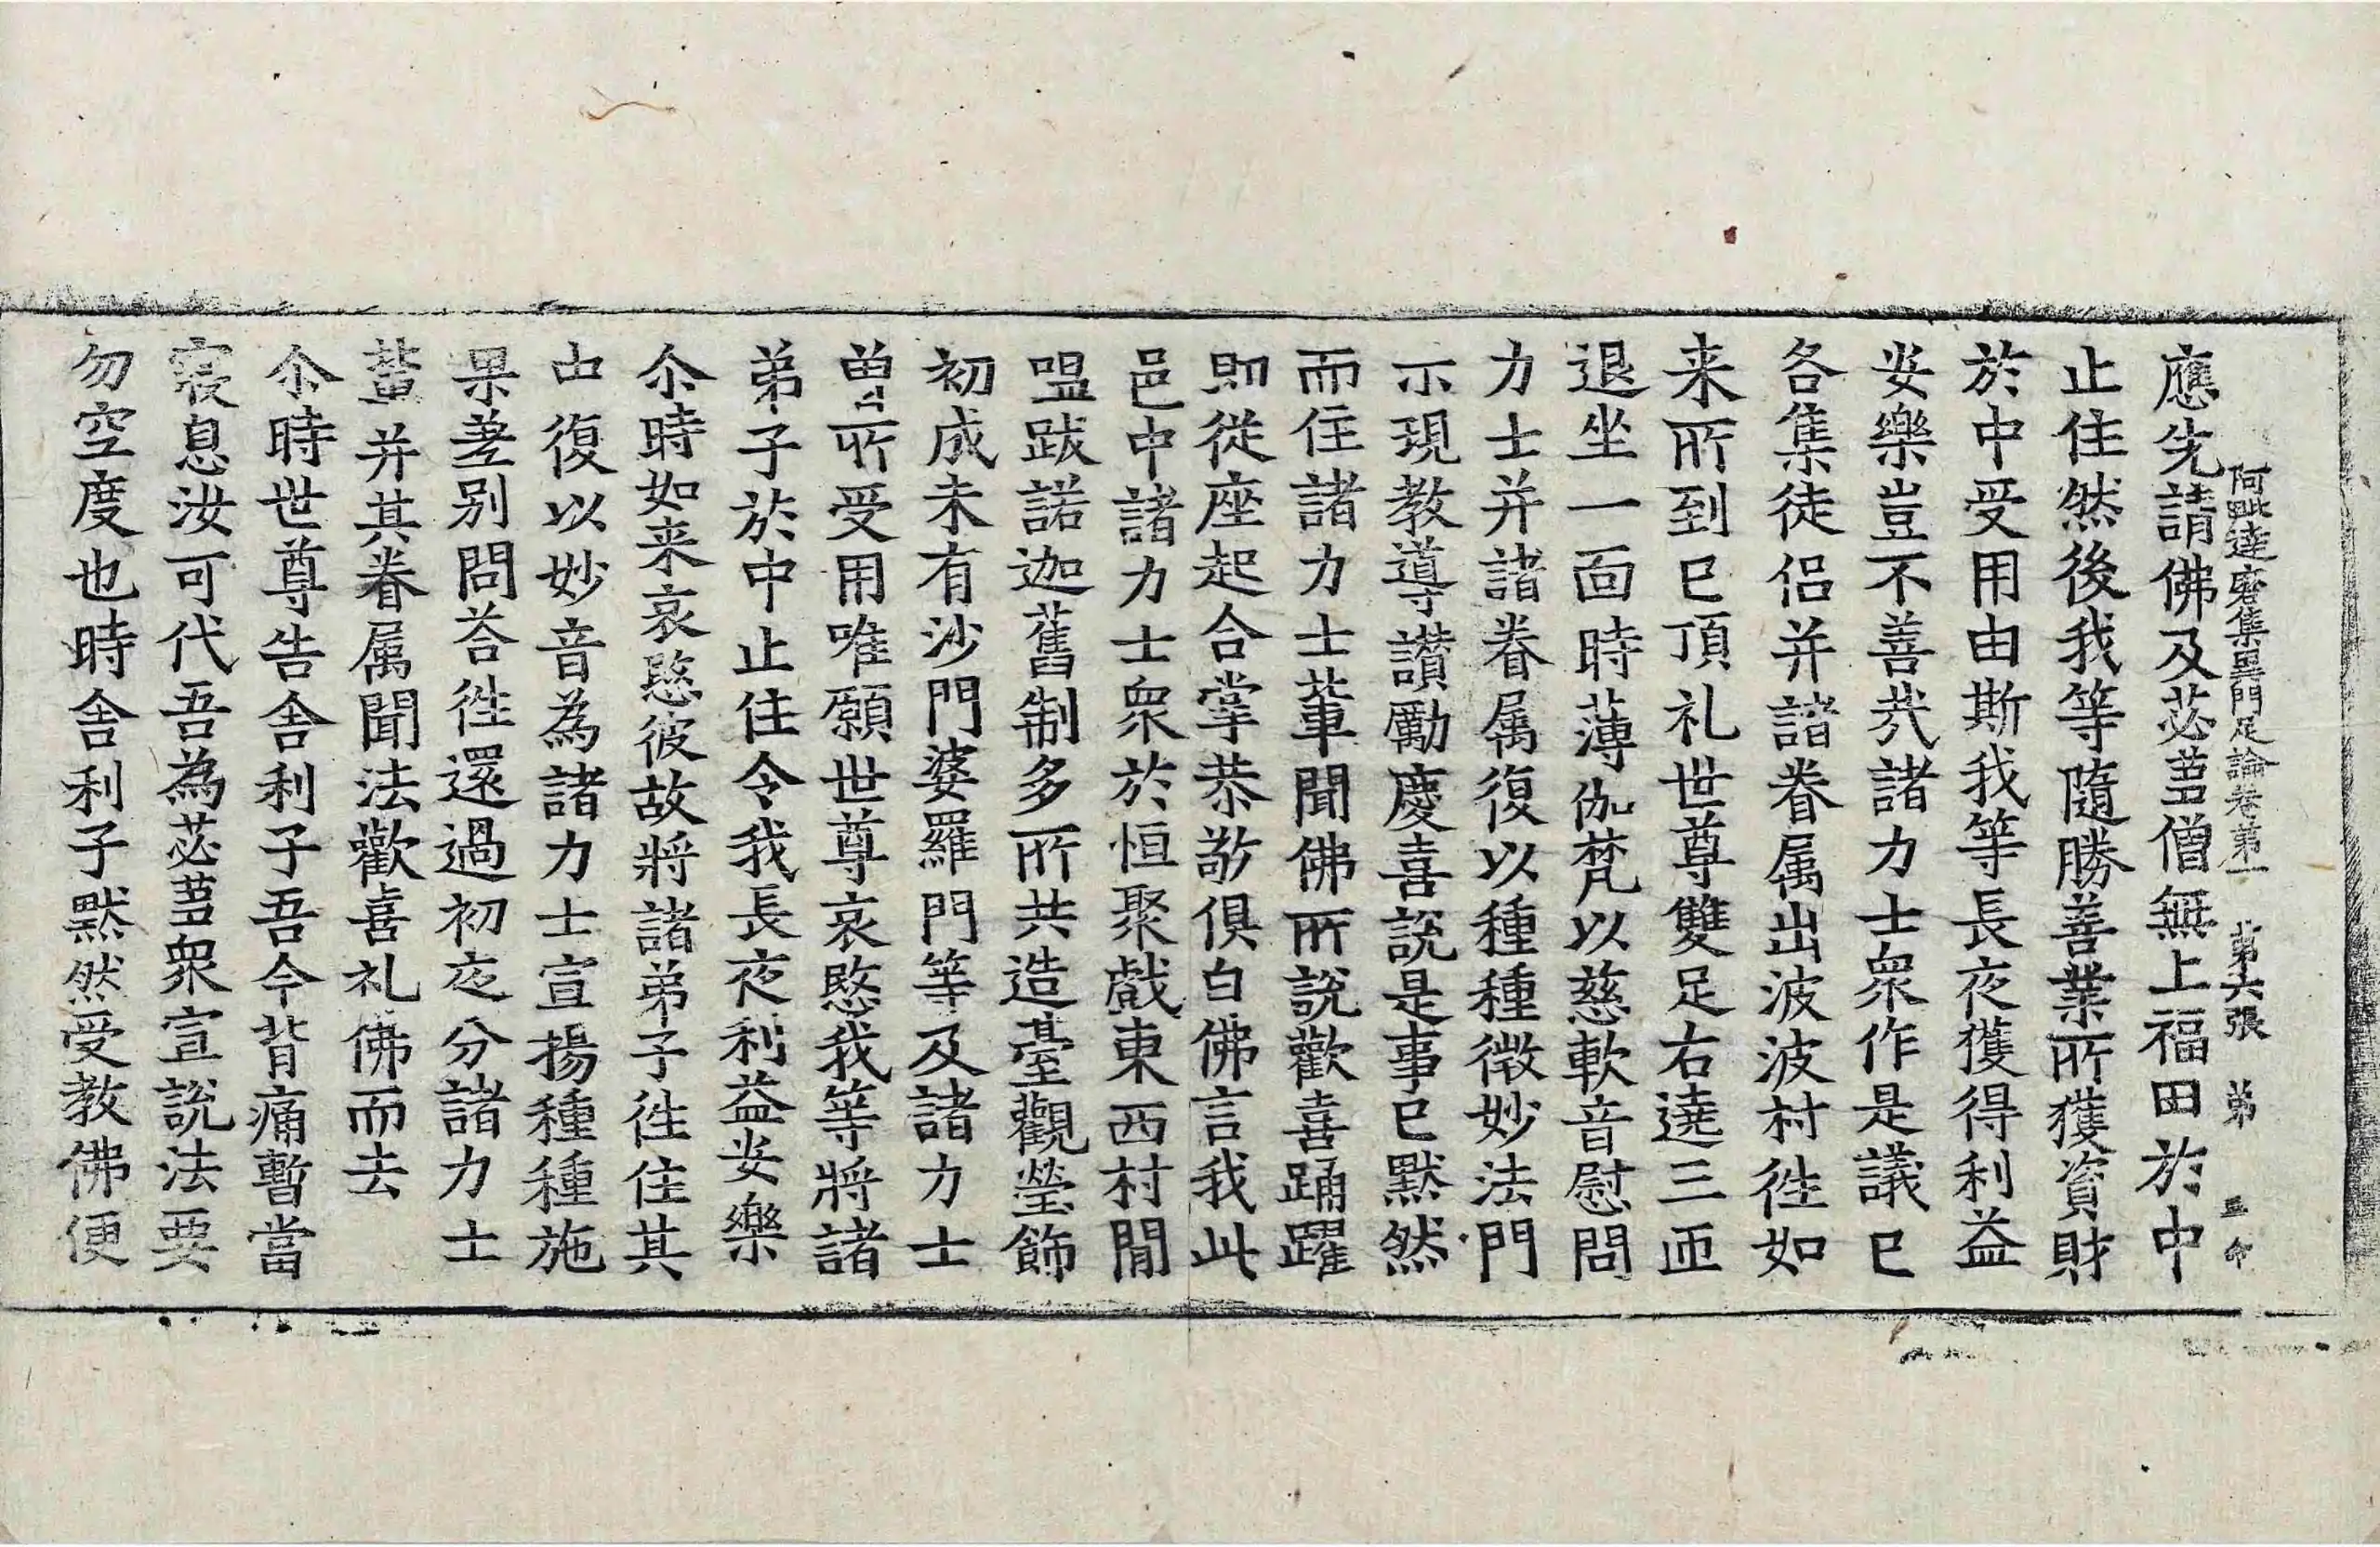 阿毗達磨集異門足論卷第一 第六張 弟
應先請佛及苾芻僧無上福田於中
止住然後我等隨勝善業所獲資財
於中受用由斯我等長夜獲得利益
安樂豈不善㢤諸力士衆作是議已
各集徒侣并諸眷属出波波村徃如
来所到已頂礼世尊雙足右遶三匝
退坐一面時薄伽梵以慈軟音慰問
力士并諸眷属復以種種微妙法門
示現教導讃勵慶喜說是事已默然
而住諸力士輩聞佛所說歡喜踊躍
即從座起合掌恭敬俱白佛言我此
邑中諸力士衆於恒聚戲東西村間
嗢跋諾迦舊制多所共造臺觀瑩飾
初成未有沙門婆羅門等及諸力士
曽所受用唯願世尊哀愍我等將諸
弟子於中止住令我長夜利益安樂
尒時如来哀愍彼故將諸弟子徃住其
中復以妙音為諸力士宣揚種種施
果差别問荅徃還過初夜分諸力士
輩并其眷属聞法歡喜礼佛而去
尒時世尊告舍利子吾今背痛暫當
寢息汝可代吾為苾芻衆宣說法要
勿空度也時舍利子默然受教佛便